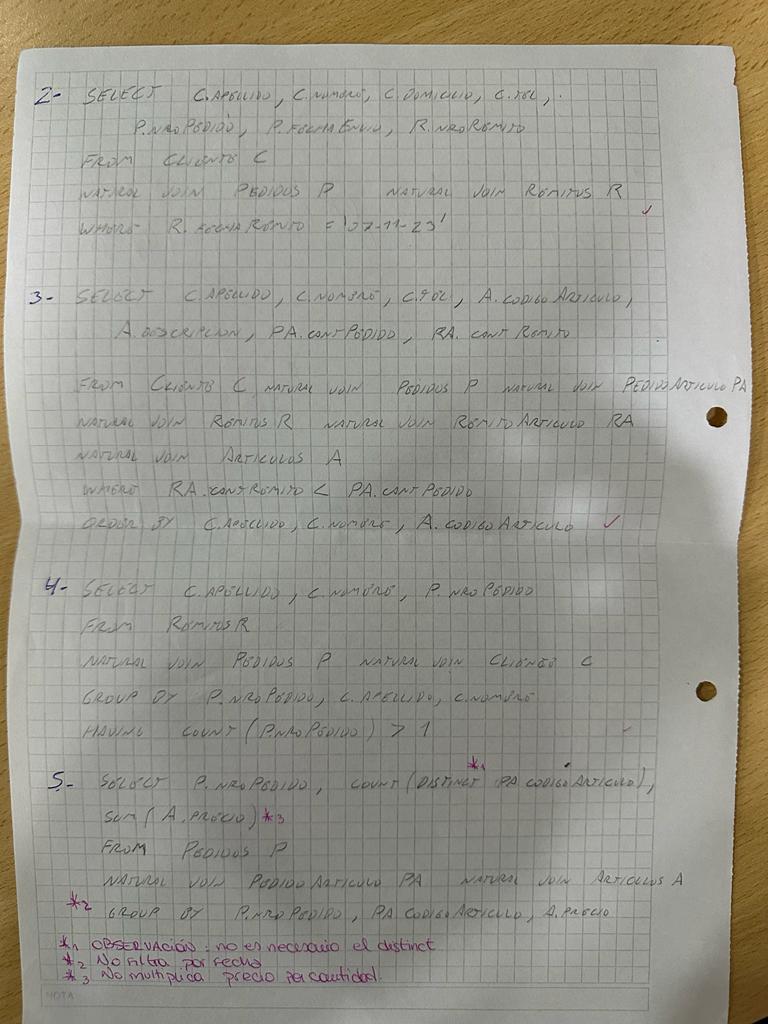 2- SELECT C.APELLIDO, C.NOMBRE, C.DOMICILIO, C.TEL,
P.NROPEDIDO, P.FECHAENVIO, R.NROREMITO
FROM CLIENTE C
NATURAL JOIN PEDIDOS P NATURAL JOIN REMITOS R
WHERE R.FECHAREMITO = '07-11-23'
3- SELECT C.APELLIDO, C.NOMBRE, C.TEL, A.CODIGOARTICULO,
A.DESCRIPCION, PA.CANTPEDIDO, RA.CANTREMITO
FROM CLIENTE C NATURAL JOIN PEDIDOS P NATURAL JOIN PEDIDOARTICULO PA
NATURAL JOIN REMITOS R NATURAL JOIN REMITOARTICULO RA
NATURAL JOIN ARTICULOS A
WHERE RA.CANTREMITO < PA.CANTPEDIDO
ORDER BY C.APELLIDO, C.NOMBRE, A.CODIGOARTICULO
4- SELECT C.APELLIDO, C.NOMBRE, P.NROPEDIDO
FROM REMITOS R
NATURAL JOIN PEDIDOS P NATURAL JOIN CLIENTE C
GROUP BY P.NROPEDIDO, C.APELLIDO, C.NOMBRE
HAVING COUNT(P.NROPEDIDO) > 1
*1
5- SELECT P.NROPEDIDO, COUNT(DISTINCT PA.CODIGOARTICULO),
SUM(A.PRECIO) *3
FROM PEDIDOS P
NATURAL JOIN PEDIDOARTICULO PA NATURAL JOIN ARTICULOS A
*2 GROUP BY P.NROPEDIDO, PA.CODIGOARTICULO, A.PRECIO
*1 OBSERVACIÓN: no es necesario el distinct
*2 No filtra por fecha
*3 No multiplica precio por cantidad.
NOTA